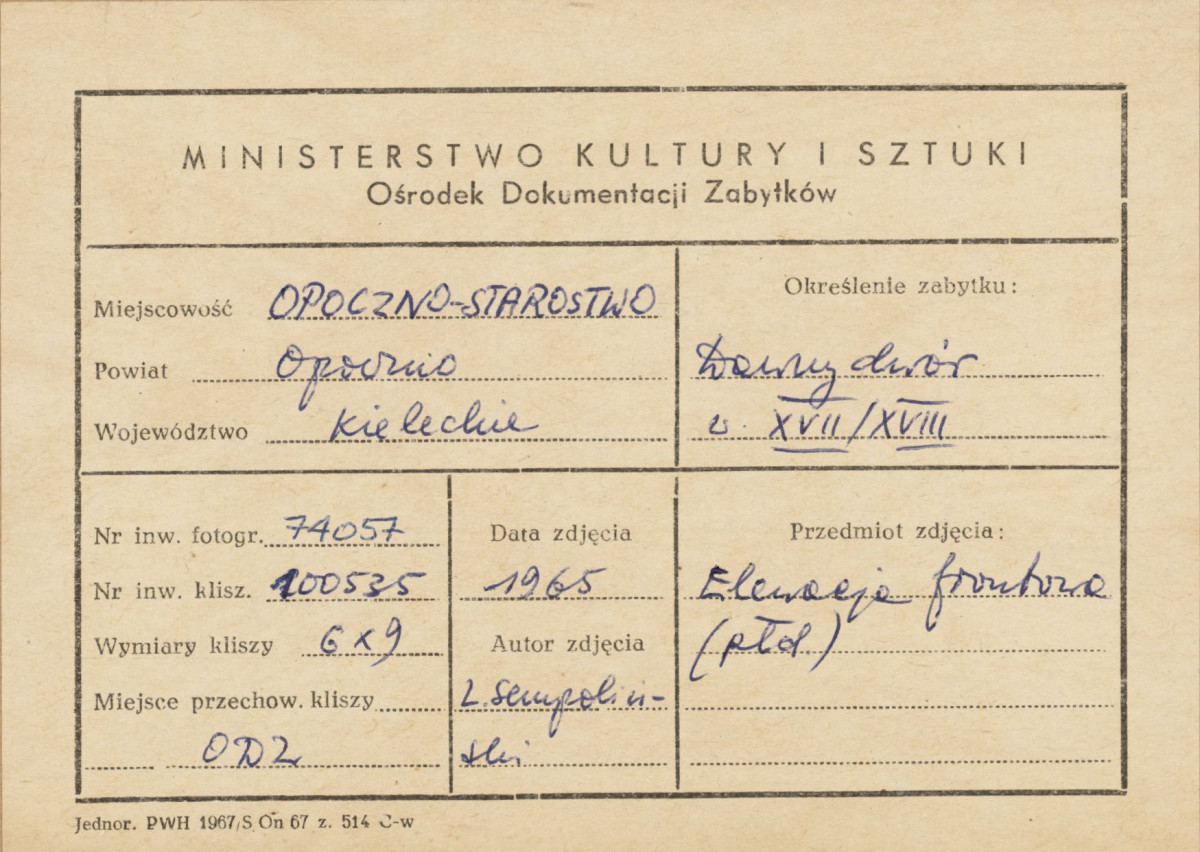 MINISTERSTWO KULTURY I SZTUKI
Ośrodek Dokumentacji Zabytków
Miejscowość OPOCZNO-STAROSTWO
Powiat Opoczno
Województwo kieleckie
Określenie zabytku:
Dawny dwór
w. XVII/XVIII
Nr inw. fotogr. 74057
Nr inw. klisz. 100535
Wymiary kliszy 6x9
Miejsce przechow. kliszy
ODZ
Data zdjęcia
1965
Autor zdjęcia
L. Sempoliń-
ski
Przedmiot zdjęcia:
Elewacja frontowa
(płd)
Jednor. PWH 1967/S On 67 z. 514 C-w